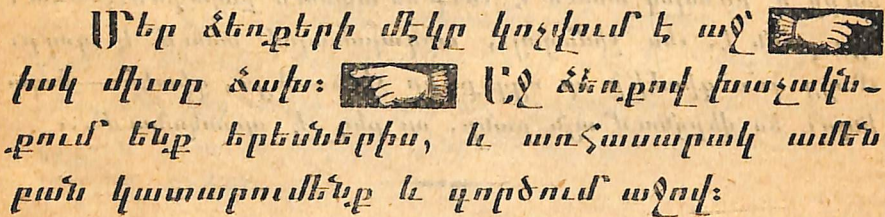 Մեր ձեռքերի մէկը կոչվում է աջ՝
իսկ միւսը ձախ։ Աջ ձեռքով խաչակն-
քում ենք երեսներիս, և առհասարակ ամեն
բան կատարումենք և գործում աջով։